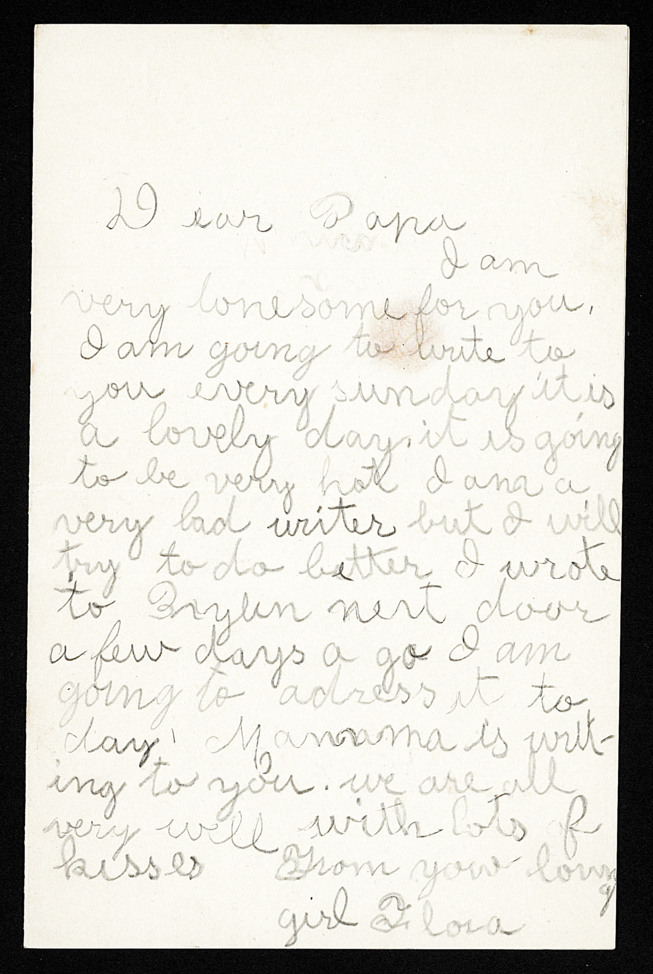 Dear Papa
I am
very lonesome for you.
I am going to write to
you every sunday it is
a lovely day. it is going
to be very hot I am a
very bad writer but I will
try to do better I wrote
to next door
a few days a go I am
going to adress it to
day. Mamma is writ-
ing to you. we are all
very well with lots of
kisses From your loving
girl Flora